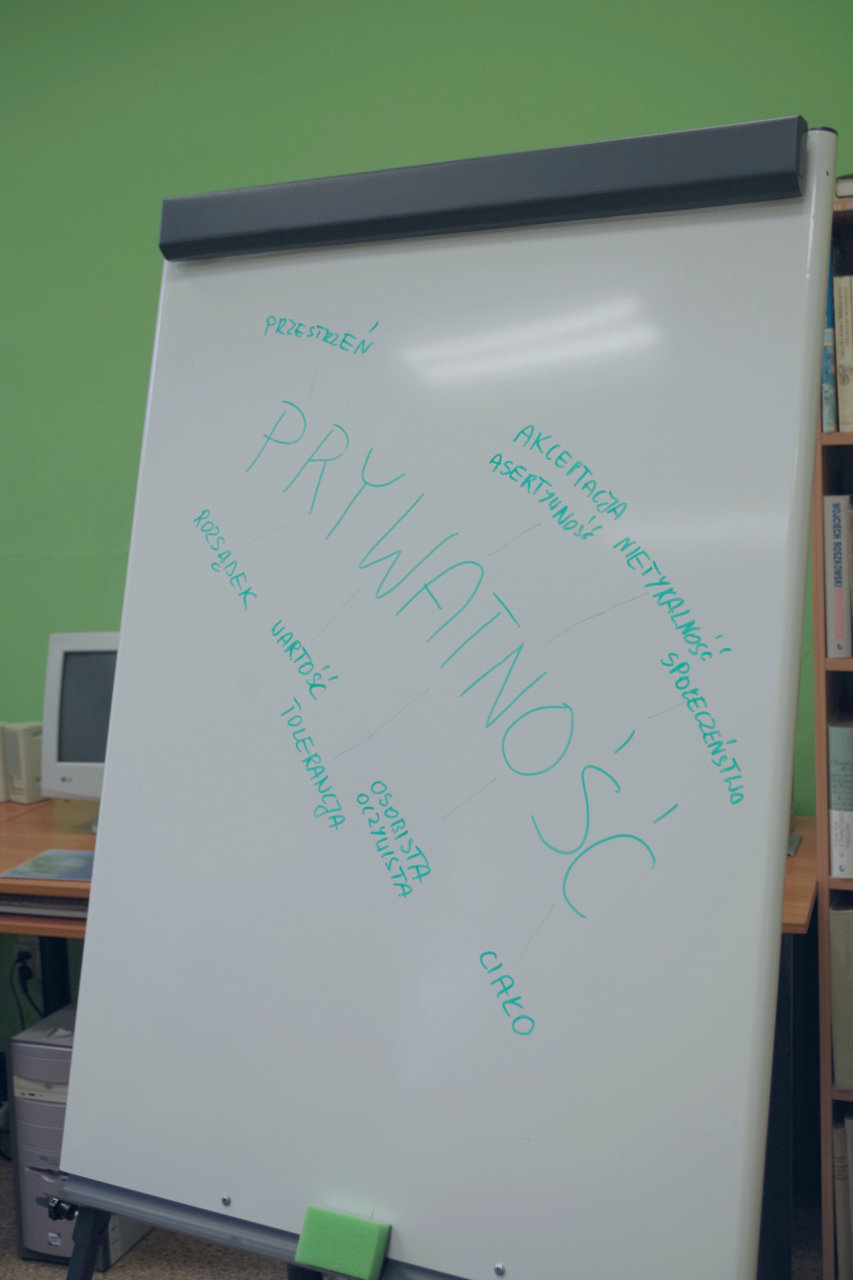 PRZESTRZEŃ
PRYWATNOŚĆ
AKCEPTACJA
ASERTYWNOŚĆ
NIETYKALNOŚĆ
SPOŁECZEŃSTWO
ROZSĄDEK
WARTOŚĆ
TOLERANCJA
OSOBISTA
OCZYWISTA
CIAŁO
WOJCIECH ROSZKOWSKI